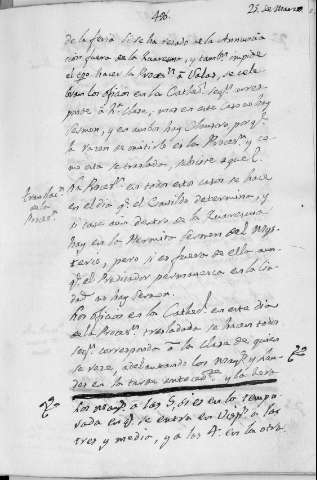 496.
25. de Marzo
de la feria si se ha rezado de la Annuncia
cion fuera de la Quaresma, y tambn. impide
el eco hacer la Procesn. à Valas, se cele
bran los oficios en la Cathedl. segn. corres
ponde à 1a. Clase, mas en este caso no hay
Sermon, y en ambos hay porqe.
la razon de omitirle es la Procesn. y co
mo esta se traslada, subsiste aquel.
Translacn.
de la
Procesn.
La Procesn. en todos estos casos se hace
en el dia qe. el Cavildo determina, y
si cae aun dentro de la Quaresma
hay en la Hermita Sermon del Mys
terio, pero si es fuera de ella aun
qe. el Predicador permanezca en la Ciu
dad no hay Sermon.
Los oficios en la Cathedl. en este dia
de la Procesn. trasladada se hacen todos
segn. corresponda à la clase de quien
se reze, adelantando los Mayts. y
dos en la tarde antecedte. y la hora
Los Mayts. à las 5, si es en la tempo
rada en qe. se entra en Visps. à las
tres y media, y à las 4. en la otra.